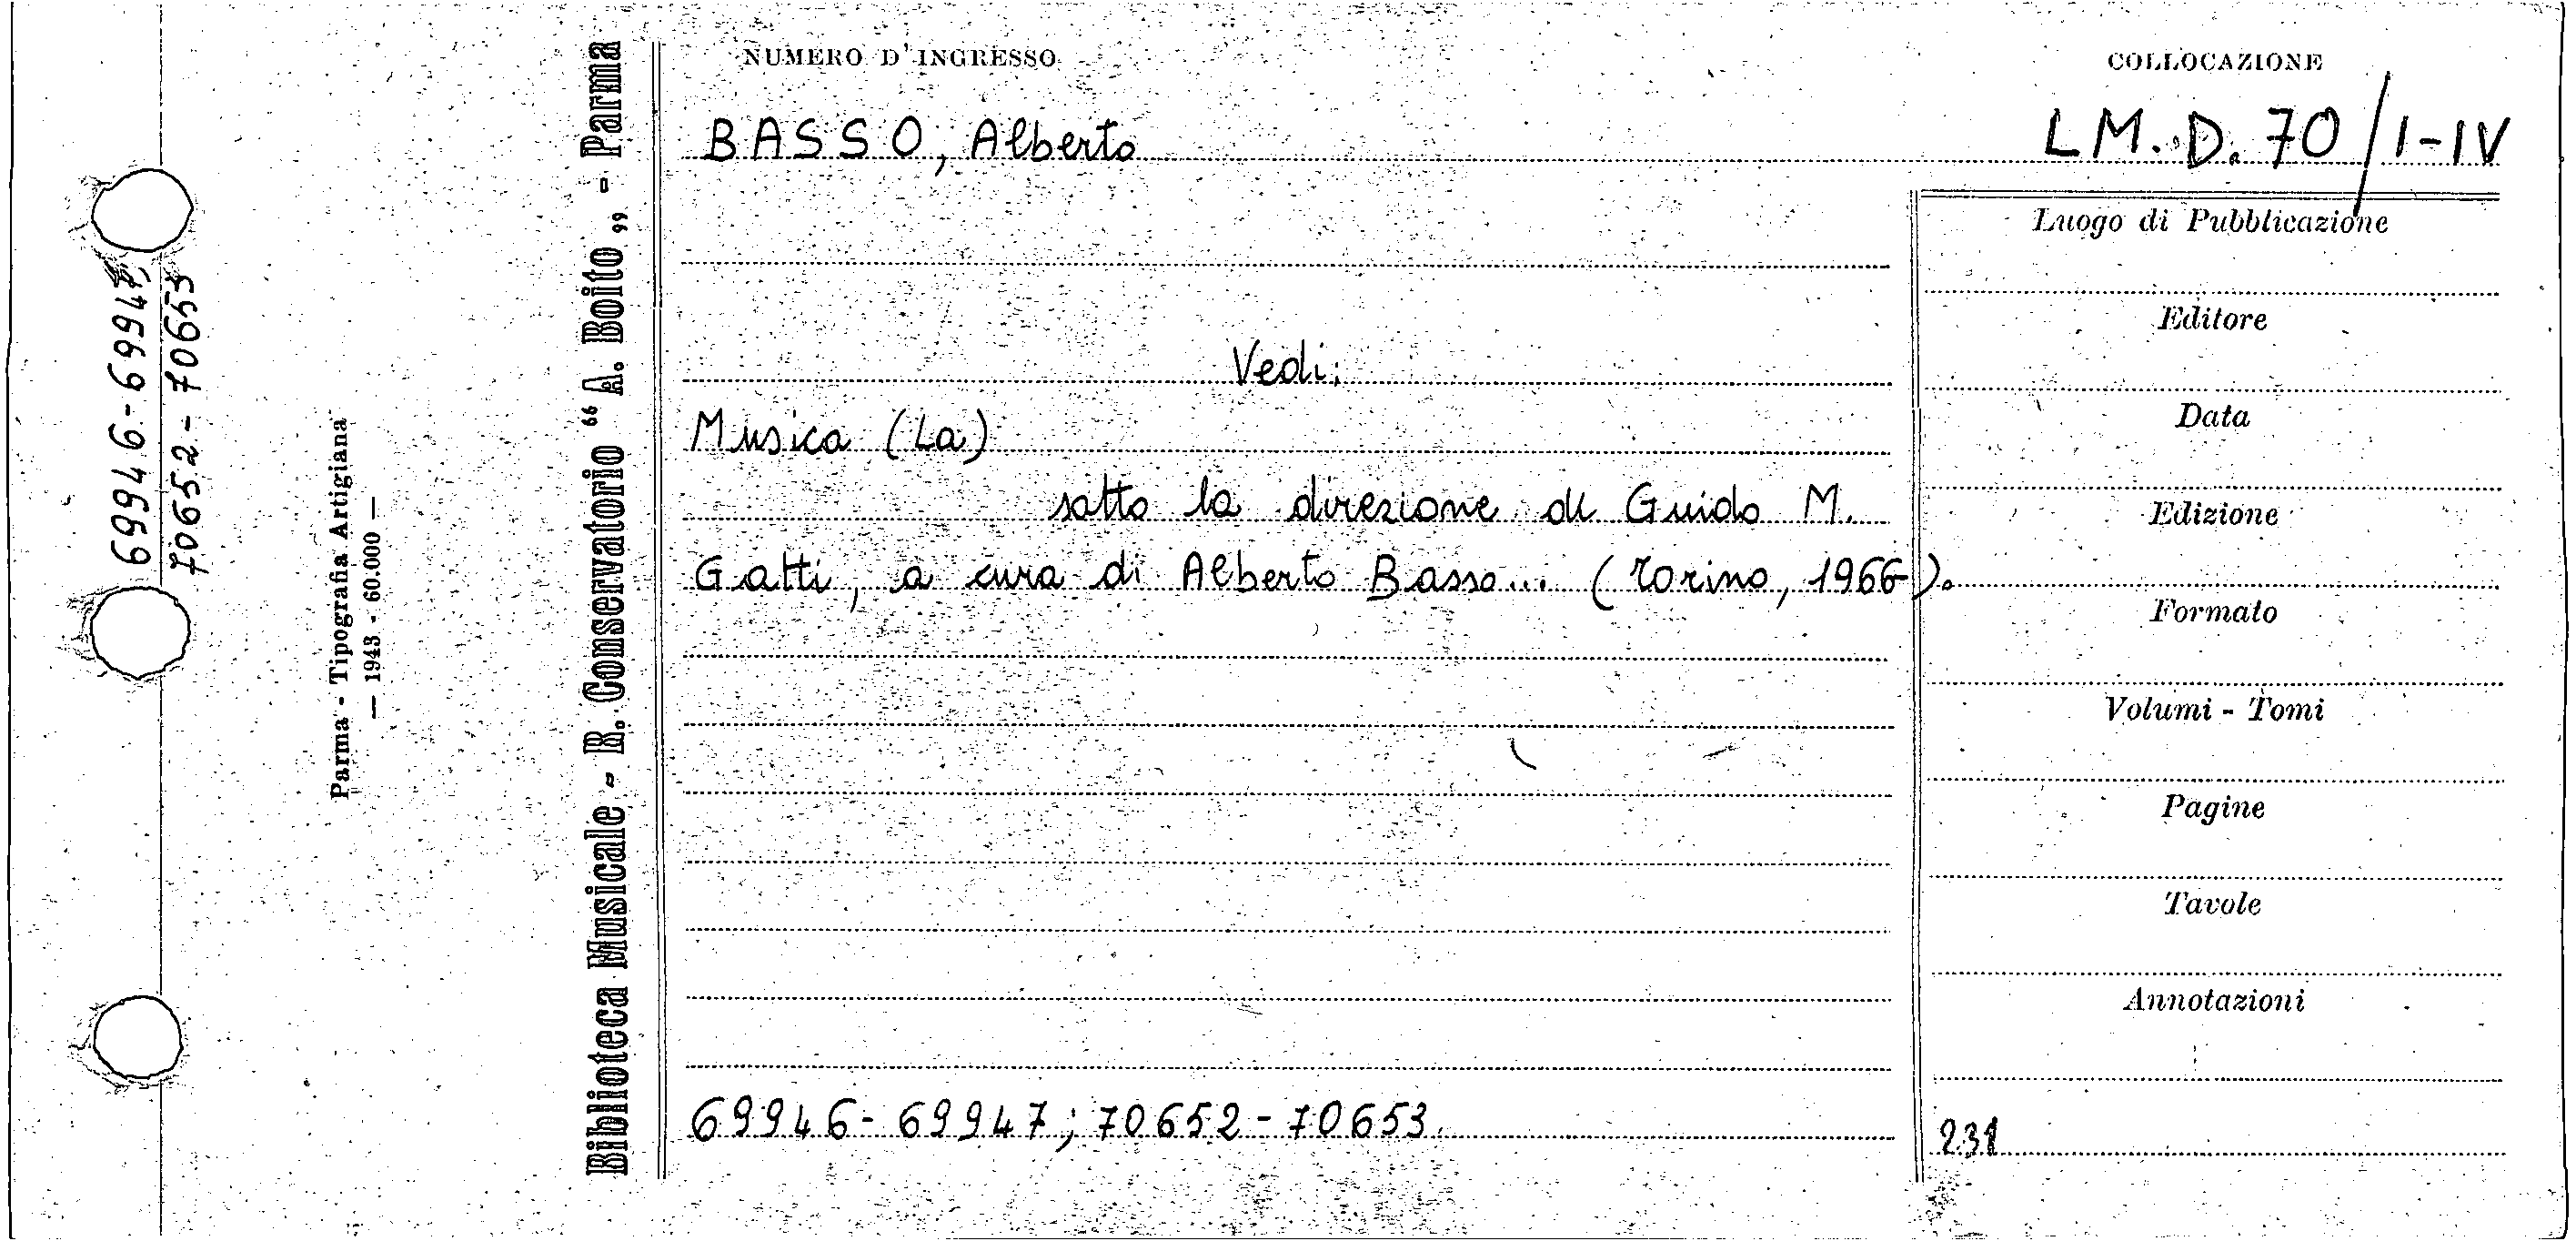 69946-69947
70652-70653
Parma - Tipografia Artigiana
— 1943 - 60.000 —
Biblioteca Musicale - R. Conservatorio “ A. Boito „ - Parma
NUMERO D'INGRESSO
COLLOCAZIONE
BASSO, Alberto
LM. D. 70/I-IV
Luogo di Pubblicazione
Editore
Vedi:
Data
Musica (La)
sotto la direzione di Guido M.
Edizione
Gatti, a cura di Alberto Basso... (Torino, 1966).
Formato
Volumi - Tomi
Pagine
Tavole
Annotazioni
69946-69947; 70652-70653
231